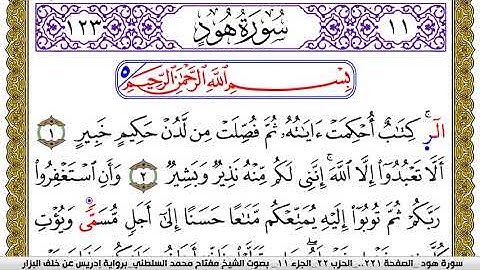 ١٢٣ سُورَةُ هُودٍ ١١
بِسْمِ اللَّهِ الرَّحْمَٰنِ الرَّحِيمِ
الٓر كِتَٰبٌ أُحْكِمَتْ ءَايَٰتُهُۥ ثُمَّ فُصِّلَتْ مِن لَّدُنْ حَكِيمٍ خَبِيرٍ ١
أَلَّا تَعْبُدُوٓا۟ إِلَّا اللَّهَ إِنَّنِى لَكُم مِّنْهُ نَذِيرٌ وَبَشِيرٌ ٢ وَأَنِ اسْتَغْفِرُوا۟
رَبَّكُمْ ثُمَّ تُوبُوٓا۟ إِلَيْهِ يُمَتِّعْكُم مَّتَٰعًا حَسَنًا إِلَىٰٓ أَجَلٍ مُّسَمًّى وَيُؤْتِ
سورة هود_الصفحة ٢٢١_الحزب ٢٢_الجزء ١١_ بصوت الشيخ مفتاح محمد السلطني_برواية إدريس عن خلف البزار